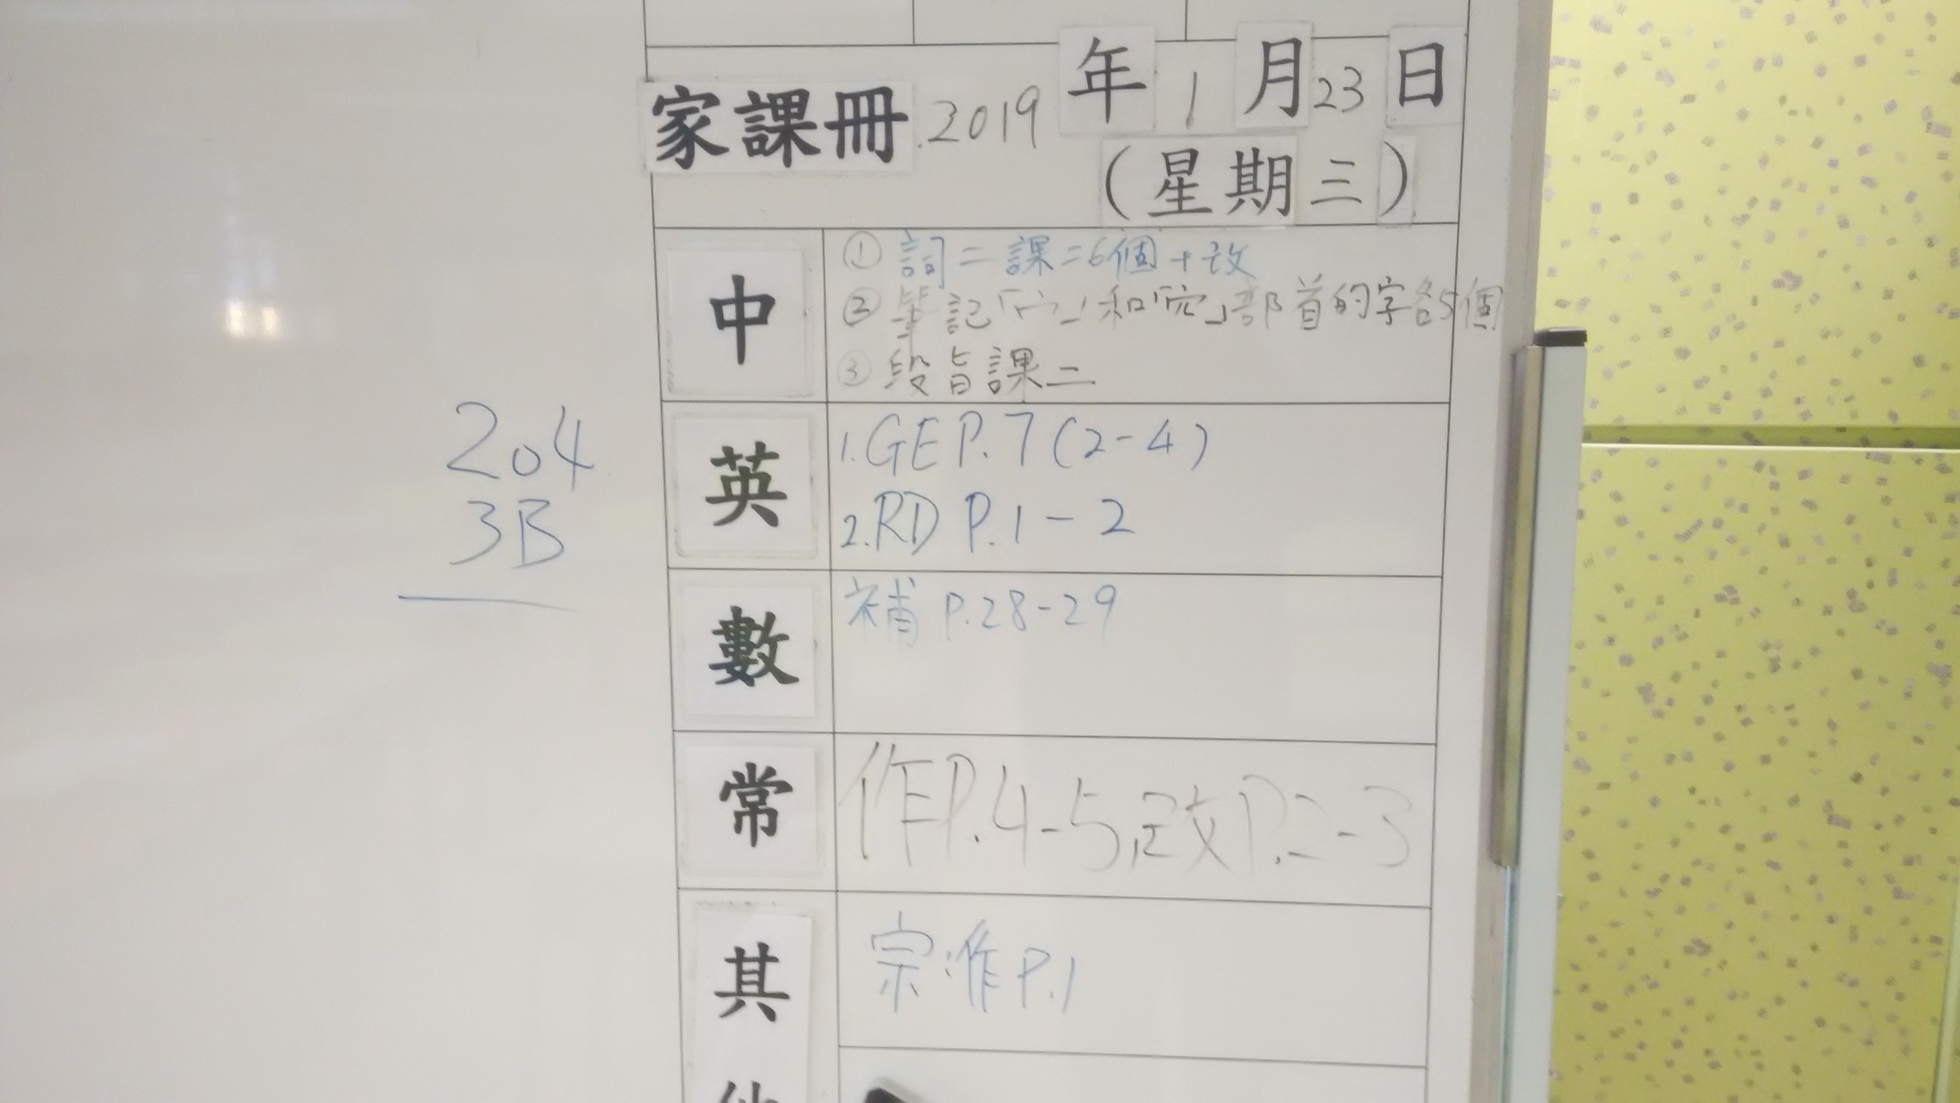 家課冊 2019年1月23日
(星期三)
中
① 詞二課=6個+改
② 筆記「宀」和「穴」部首的字各5個
③ 段旨課二
英
1.GE P.7(2-4)
2.RD P.1-2
數
補 P.28-29
常
作P.4-5,改P.2-3
其
宗:作P.1
204
3B